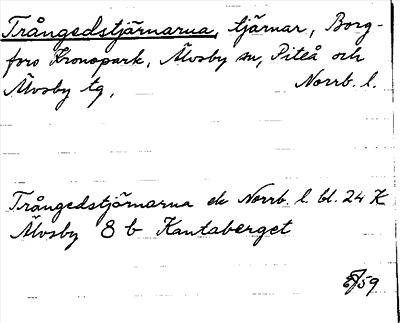 Trångedstjärnarna, tjärnar, Borg-
fors Kronopark, Älvsby sn, Piteå och
Älvsby tg, Norrb. l.
Trångedstjärnarna ek Norrb. l. bl. 24 K
Älvsby 8 b Kantaberget
/59